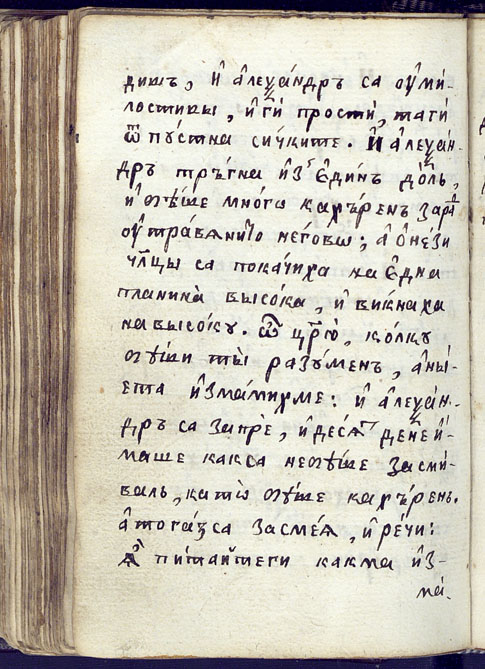 дишъ, и҆ а҆леѯа́ндръ са оу҆ми-
лостивы, и҆ г҃и прости́, та ги
ѿпу́стна си́чките. И҆ а҆леѯа́н-
дръ тръ́гна и҆з̾ є҆ди́нъ до́лъ,
и҆ ѻ҆ти́ше мно́гѡ кахъ́ренъ зара́д
оу҆тра́вѧнїю него́вѡ; а҆ ѻ҆не́зи
чл҃цы са покачи́ха на є҆дна
планина̀ высо́ка, и҆ викна́ха
на высо́ку. ѽ цр҃ю̀, ко́лку
бѣ́ши ты̀ разу́менъ, а҆ ны́-
е та и҆зма́михме: и҆ а҆леѯа́н-
дръ са запрѐ, и҆ де́сѧт де́не и҆-
маше как са не бѣ́ше засми́-
валъ, като̀ бѣ́ше кахъ́ренъ.
а҆ тога́з са засме́ѧ, и҆ ре́чи:
ѧ҆ пи́тайте ги как ма и҆з-
ма́-